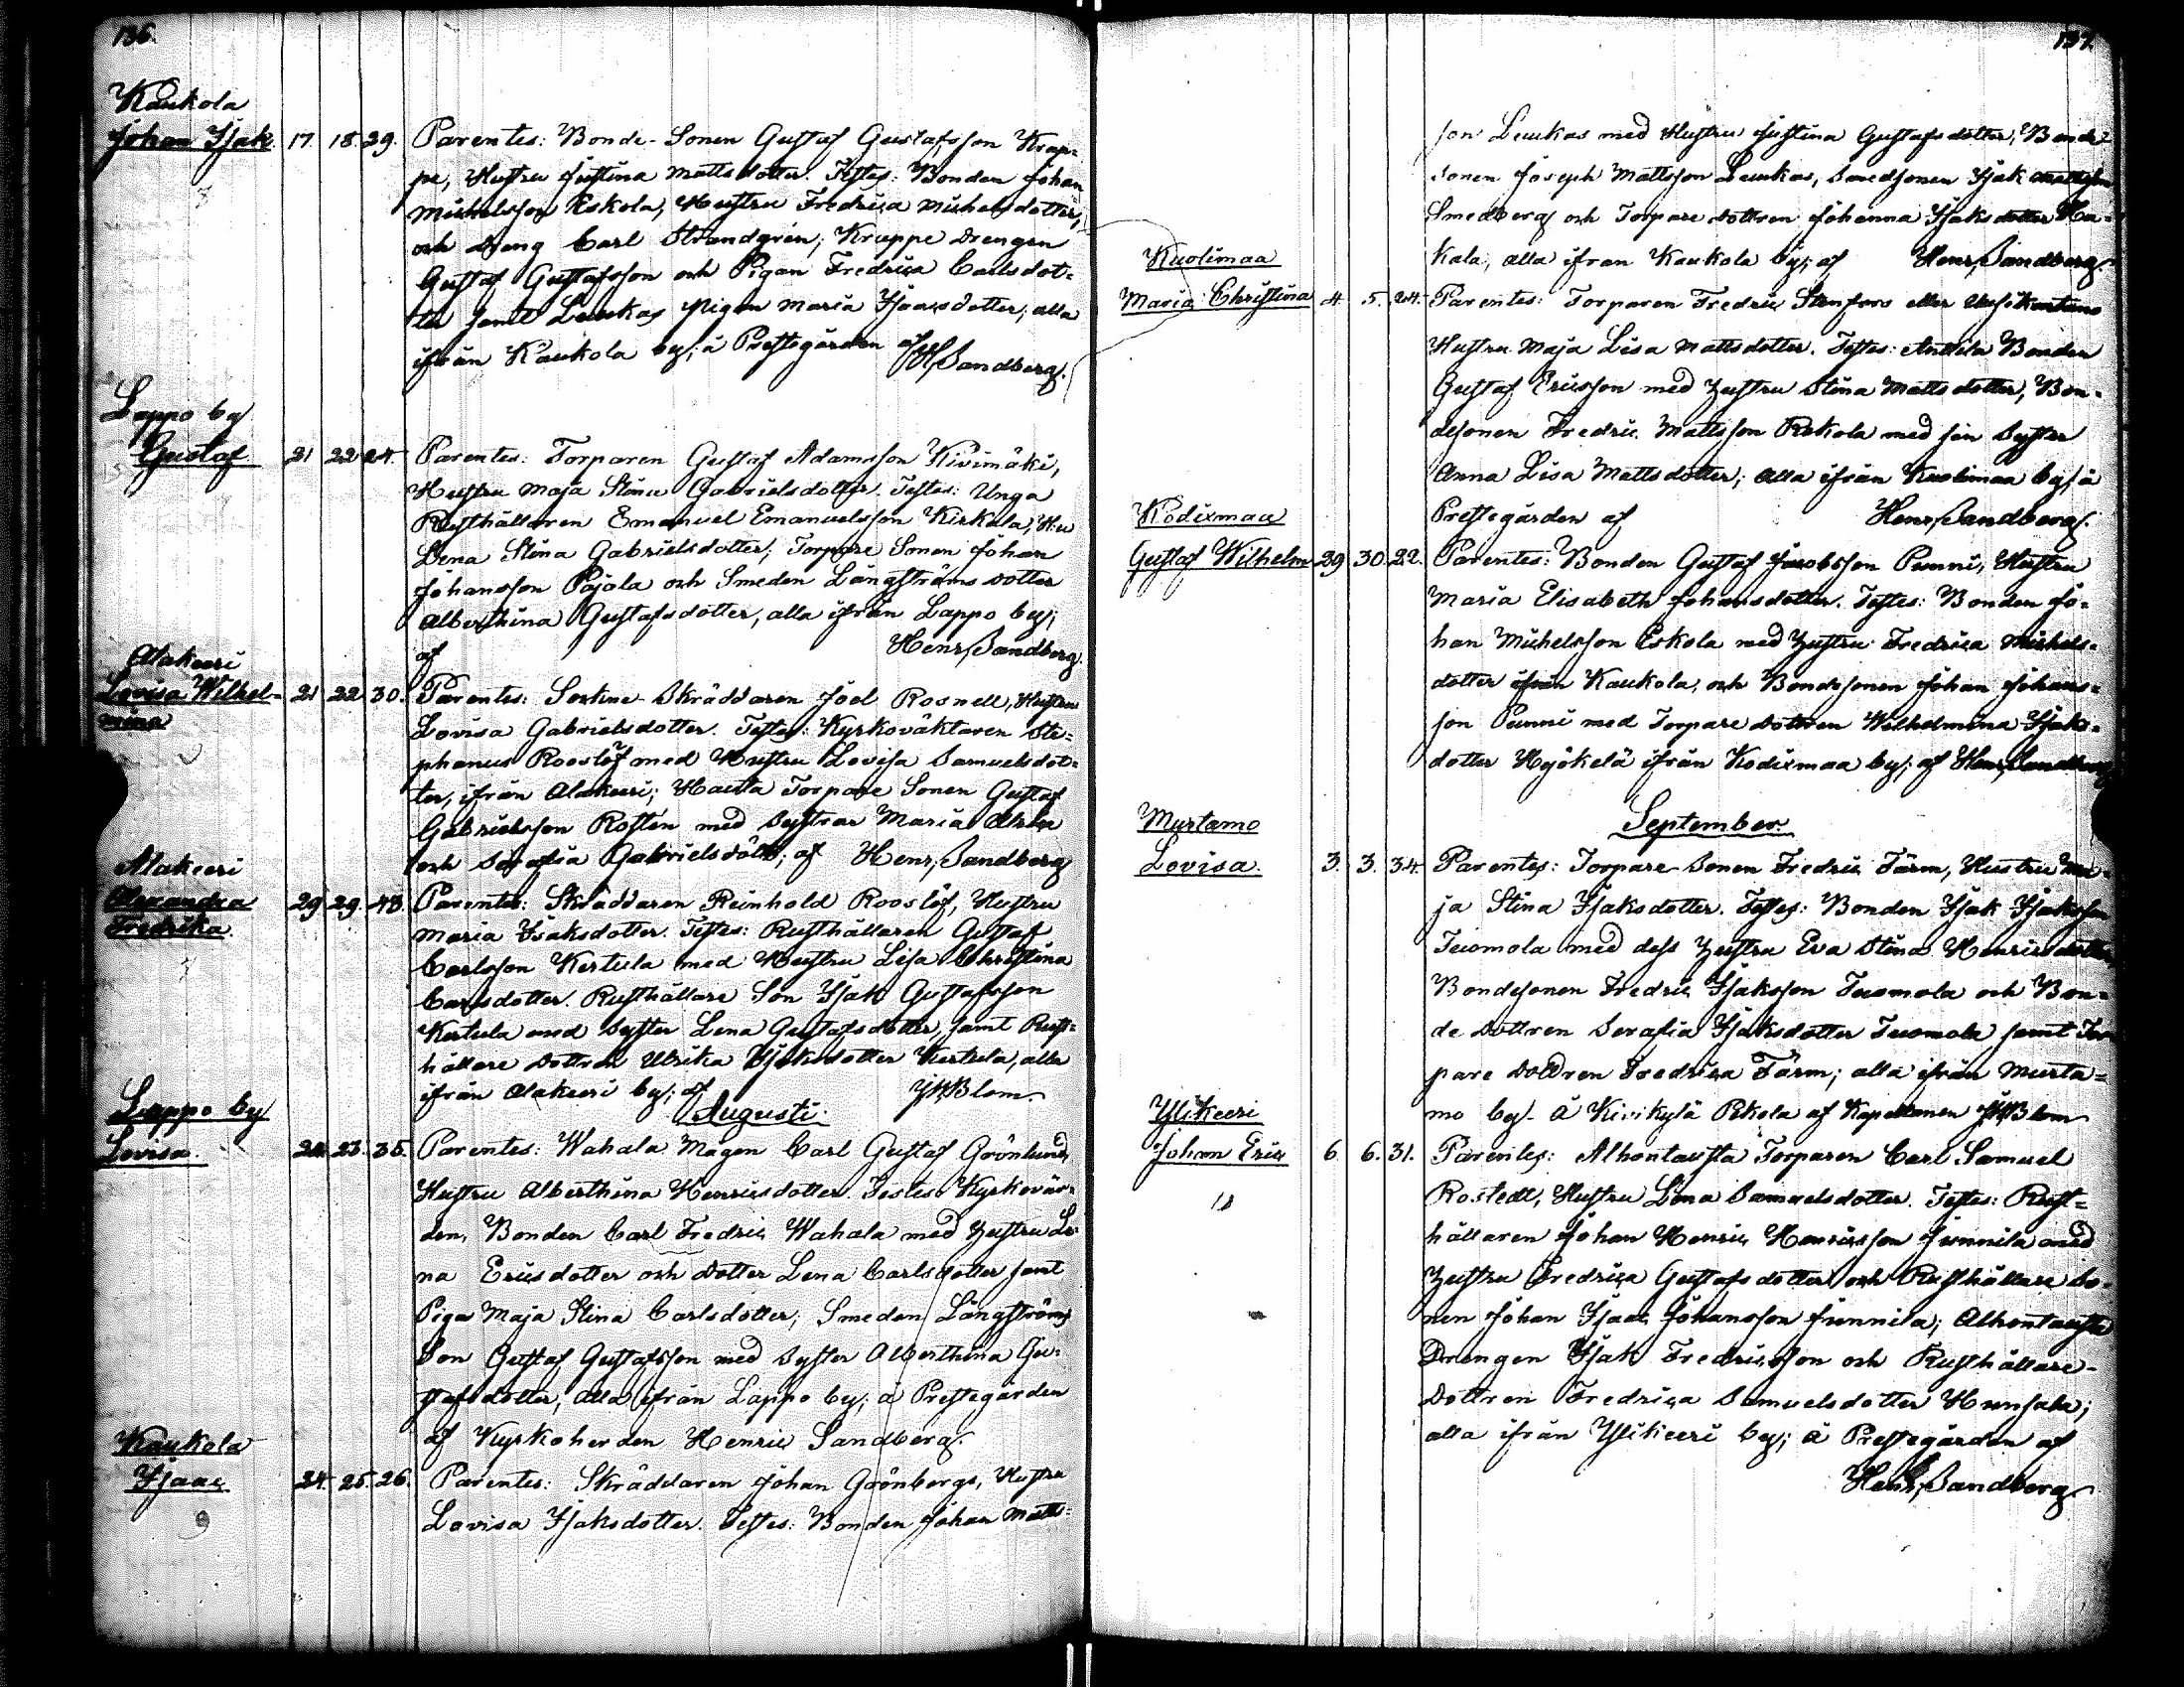 136.
Kaukola
Johan Isak 17. 18. 29. Parentes: Bonde-Sonen Gustaf Gustafsson Krap-
pe, Hustru Justina Mattsdotter. Testes: Bonden Johan
Michelsson Eskola, Hustru Fredrica Michelsdotter,
och Dreng Carl Strandgrén; Krappe Drengen
Gustaf Gustafsson och Pigan Fredrica Carlsdot-
ter samt Leukas pigan Maria Isaacsdotter; alla
ifrån Kaukola by; å Prestegården af
H Sandberg.
Lappo by
Gustaf 21 22 24. Parentes: Torparen Gustaf Adamsson Kivimäki,
Hustru Maja Stina Gabrielsdotter. Testes: Unga
Rusthållaren Emanuel Emanuelsson Kirkola, H:u
Lena Stina Gabrielsdotter; Torpare Sonen Johan
Johansson Pajala och Smeden Långströms dotter
Alberthina Gustafsdotter, alla ifrån Lappo by;
af Henr. Sandberg.
Alakeeri
Lovisa Wilhel- 21 22 30. Parentes: Sockne-Skräddaren Joel Rosnell, Hustru
mina Lovisa Gabrielsdotter. Testes: Kyrkoväktaren Ste-
phanus Rooslöf med Hustru Lovisa Samuelsdot-
ter, ifrån Alakeeri; Torpare Sonen Gustaf
Gabrielsson Rostén med Systrar Maria
och Serafia Gabrielsdöttr.; af Henr. Sandberg
Alakeeri
Alexandra 29 29. 43. Parentes: Skräddaren Reinhold Rooslöf, Hustru
Fredrika Maria Isaksdotter. Testes: Rusthållaren Gustaf
Carlsson Kertula med Hustru Lisa Christina
Carlsdotter. Rusthållare Son Isak Gustafsson
Kertula med Syster Lena Gustafsdotter, samt Rust-
hållare dottren Ulrika Isaksdotter Kertula, alla
ifrån Alakeeri by; af JW Blom.
Augusti.
Lappo by
Lovisa. 23. 35. Parentes: Wahala Mågen Carl Gustaf Grönlund,
Hustru Alberthina Henricsdotter. Testes: Kyrkovär-
den, Bonden Carl Fredric Wahala med Hustru Le-
na Ericsdotter och dotter Lena Carlsdotter samt
Piga Maja Stina Carlsdotter; Smeden Långströms
Son Gustaf Gustafsson med Syster Alberthina Gu-
stafsdotter, alla ifrån Lappo by; å Prestegården
af Kyrkoherden Henric Sandberg.
Kaukola
Isaac 24. 25. 26. Parentes: Skräddaren Johan Grönberg, Hustru
Lovisa Isaksdotter. Testes: Bonden Johan Matts-
9
137.
son Leukas med Hustru Justina Gustafsdotter, Bonde-
sonen Joseph Mattsson Leukas, Smedsonen Isak Mattsson
Smedberg och Torpare dottren Johanna Isaksdotter Ha-
kala, alla ifrån Kaukola by; af Henr. Sandberg.
Kuolimaa
Maria Christina 4. 5. 24. Parentes: Torparen Fredric Stenfors eller
Hustru Maja Lisa Mattsdotter. Testes: Anttila Bonden
Gustaf Ericsson med Hustru Stina Mattsdotter, Bon-
desonen Fredric Mattsson Rekola med sin Syster
Anna Lisa Mattsdotter; alla ifrån Kuolimaa by; å
Prestegården af Henr. Sandberg.
Kodixmaa
Gustaf Wilhelm 29 30. 22. Parentes: Bonden Gustaf Jacobsson Punni, Hustru
Maria Elisabeth Johansdotter. Testes: Bonden Jo-
han Michelsson Eskola med Hustru Fredrica Michels-
dotter ifrån Kaukola, och Bondesonen Johan Johans-
son Punni med Torpare dottren Wilhelmina Isaks-
dotter Hyökelä ifrån Kodixmaa by; af Henr. Sandberg
September.
Murtamo
Lovisa. 3. 3. 34. Parentes: Torpare-Sonen Fredric Färm, Hustru Ma-
ja Stina Isaksdotter. Testes: Bonden Isak Isaksson
Tuomola med dess Hustru Eva Stina Henricsdotter,
Bondesonen Fredric Isaksson Tuomola och Bon-
de dottren Serafia Isaksdotter Tuomola samt Tor-
pare dottren Fredrica Färm; alla ifrån Murta-
mo by. å Kivikylä Pekola af Kapellanen JW Blom
Ylikeeri
Johan Eric 6 6. 31. Parentes: Alhontausta Torparen Carl Samuel
Rostedt, Hustru Lena Samuelsdotter. Testes: Rust-
hållaren Johan Henric Henricsson Junnila med
Hustru Fredrica Gustafsdotter och Rusthållare So-
nen Johan Isaac Johansson Junnila; Alhontausta
Drengen Isak Fredricsson och Rusthållare-
Dottren Fredrica Samuelsdotter Hunsala;
alla ifrån Ylikeeri by; å Prestegården af
Henr. Sandberg